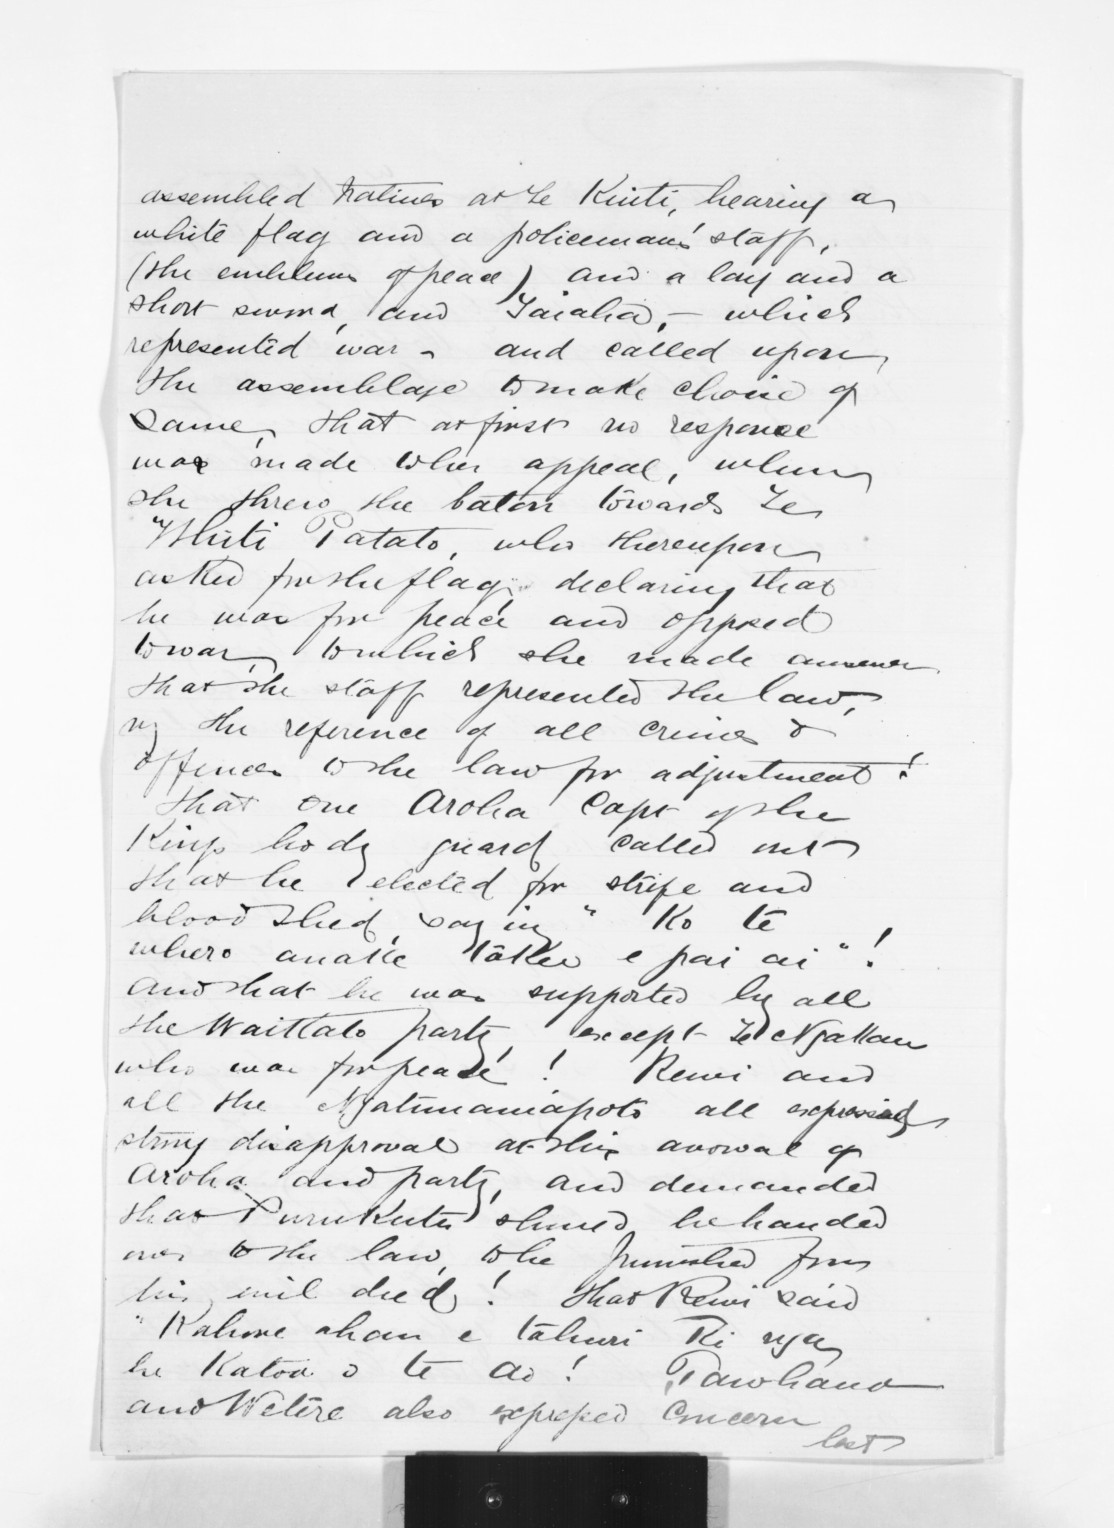 assembled natives at Te Kuiti, bearing a
white flag and a policeman's staff,
(the emblems of peace) and a long and a
short sword, and Taiaha, – which
represented war – and called upon
the assemblage to make choice of
same, that at first no response
was made to her appeal, when
she threw the baton towards Te
Whiti Patato, who thereupon
asked for the flag declaring that
he was for peace and opposed
to war, to which she made answer
that the staff represented the law,
the reference of all crimes &
offences to the law for adjustment!
That one Aroha Capt of the
Kings body guard called out
that he elected for strife and
bloodshed, saying " Ko te
whero anake take e pai ai"!
and that he was supported by all
the Waikato party, except Te Ngakau
who was for peace! Rewi and
all the Ngatimaniapoto all expressed
strong disapproval at this avowal of
Aroha and party, and demanded
that Purukutu should be handed
over to the law, to be punished for
his evil deed! that Rewi said
" Kahore ahau e tahuri ki nga
he katoa o te ao! Tawhiao
and Wetere also expressed concern
lest